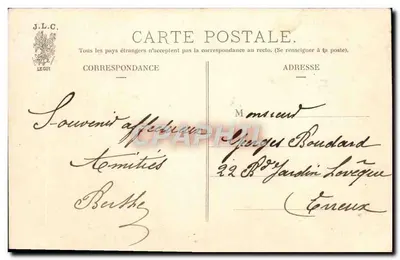 J.L.C.
CARTE POSTALE.
Tous les pays étrangers n'acceptent pas la correspondance au recto. (Se renseigner à la poste).
CORRESPONDANCE
ADRESSE
Souvenir affectueux
Amitiés
Berthe
Monsieur
Georges Boudard
22 Rd Jardin Lovêque
Evreux